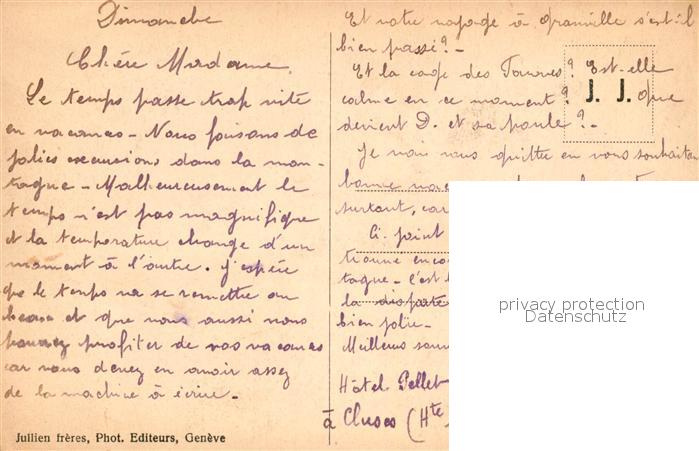 Dimanche
Chère Madame,
Le temps passe trop vite
en vacances - Nous faisons de
jolies excursions dans la mon-
tagne - Malheureusement le
temps n'est pas magnifique
et la température change d'un
moment à l'autre. J'espère
que le temps va se remettre au
beau et que vous aussi vous
pourrez profiter de vos vacances
car vous devez en avoir assez
de la machine à écrire -
Jullien frères, Phot. Editeurs, Genève
Et votre voyage à Granville s'est-il
bien passé? -
Et la cage des ? Est-elle
calme en ce moment? Que
devient D. et sa poule? -
J. J.
Je vais vous quitter en vous souhaitant
bonne
surtout, car
Ci-joint
trouve enco
tagne - C'est
la
bien jolie -
Meilleurs souv
Hôtel Pellet
à Cluses (Hte
privacy protection
Datenschutz